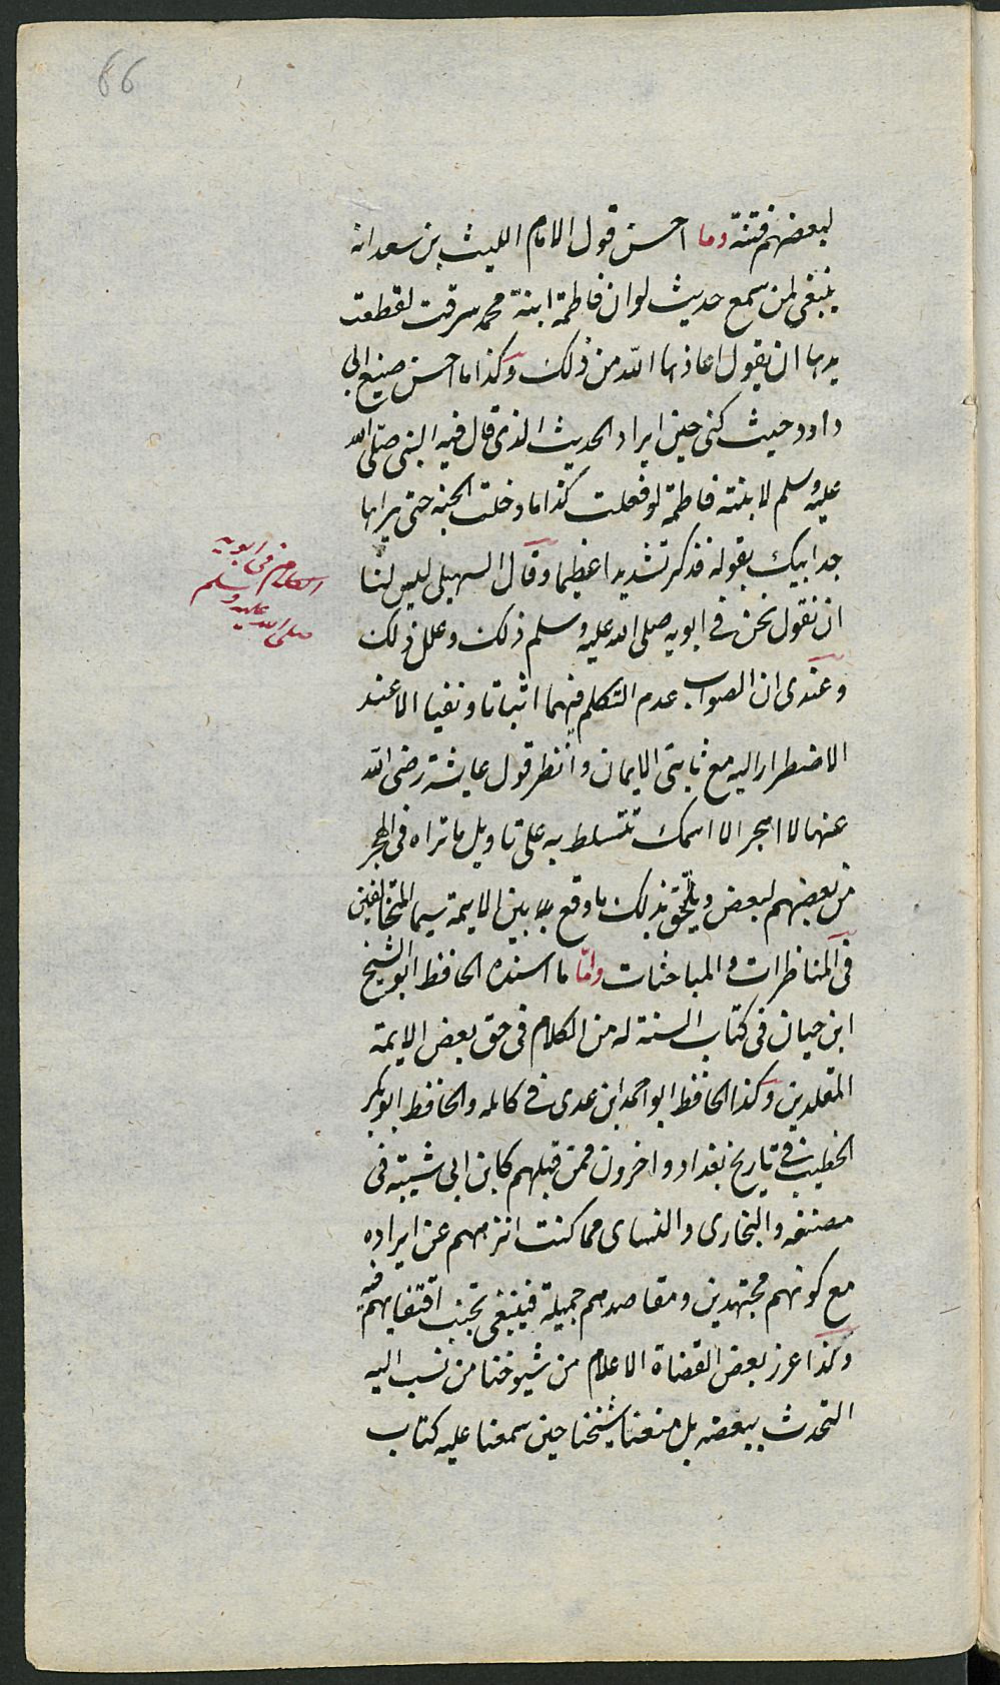 66
لبعضهم فتنة وما احسن قول الامام الليث بن سعد انه
ينبغى لمن سمع حديث لو ان فاطمة ابنة محمد سرقت لقطعت
يدها ان يقول اعاذها الله من ذلك وكذا ما احسن صنيع ابى
داود حيث كنى حين ايراد الحديث الذى قال فيه النبى صلى الله
عليه وسلم لابنته فاطمة لو فعلت كذا ما دخلت الجنة حتى يراها
جد ابيك بقوله فذكر تشديدا عظيما وقال السهيلى ليس لنا
ان نقول نحن فى ابويه صلى الله عليه وسلم ذلك وعلل ذلك
وعندى ان الصواب عدم التكلم فيهما اثباتا ونفيا الا عند
الاضطرار اليه مع ثابتى الايمان وانظر قول عايشة رضى الله
عنها لا اهجر الا اسمك تتسلط به على تاويل ما تراه فى الهجر
من بعضهم لبعض ويلتحق بذلك ما وقع بين الايمة سيما المتخالفين
فى المناظرات والمباحثات واما ما اسنده الحافظ ابو الشيخ
ابن حيان فى كتاب السنة له من الكلام فى حق بعض الايمة
المقلدين وكذا الحافظ ابو احمد ابن عدى فى كامله والحافظ ابو بكر
الخطيب فى تاريخ بغداد واخرون ممن قبلهم كابن ابى شيبة فى
مصنفه والبخارى والنساى مما كنت انزههم عن ايراده
مع كونهم مجتهدين ومقاصدهم جميلة فينبغى تجنب اقتفايهم فيه
وكذا عزر بعض القضاة الاعلام من شيوخنا من نسب اليه
التحدث ببعضه بل منعنا شيخنا حين سمعنا عليه كتاب
الكلام فى ابويه
صلى الله عليه وسلم